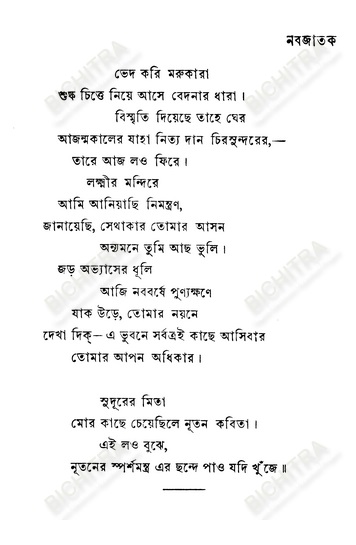 নবজাতক
ভেদ করি মরুকারা
শুষ্ক চিত্তে নিয়ে আসে বেদনার ধারা।
বিস্মৃতি দিয়েছে তাহে ঘের
আজন্মকালের যাহা নিত্য দান চিরসুন্দরের,—
তারে আজ লও ফিরে।
লক্ষ্মীর মন্দিরে
আমি আনিয়াছি নিমন্ত্রণ,
জানায়েছি, সেথাকার তোমার আসন
অন্যমনে তুমি আছ ভুলি।
জড় অভ্যাসের ধূলি
আজি নববর্ষে পুণ্যক্ষণে
যাক উড়ে, তোমার নয়নে
দেখা দিক্‌— এ ভুবনে সর্বত্রই কাছে আসিবার
তোমার আপন অধিকার।
সুদূরের মিতা
মোর কাছে চেয়েছিলে নূতন কবিতা।
এই লও বুঝে,
নূতনের স্পর্শমন্ত্র এর ছন্দে পাও যদি খুঁজে॥
BICHITRA
BICHITRA
BICHITRA
BICHITRA
BICHITRA
BICHITRA
BICHITRA
BICHITRA